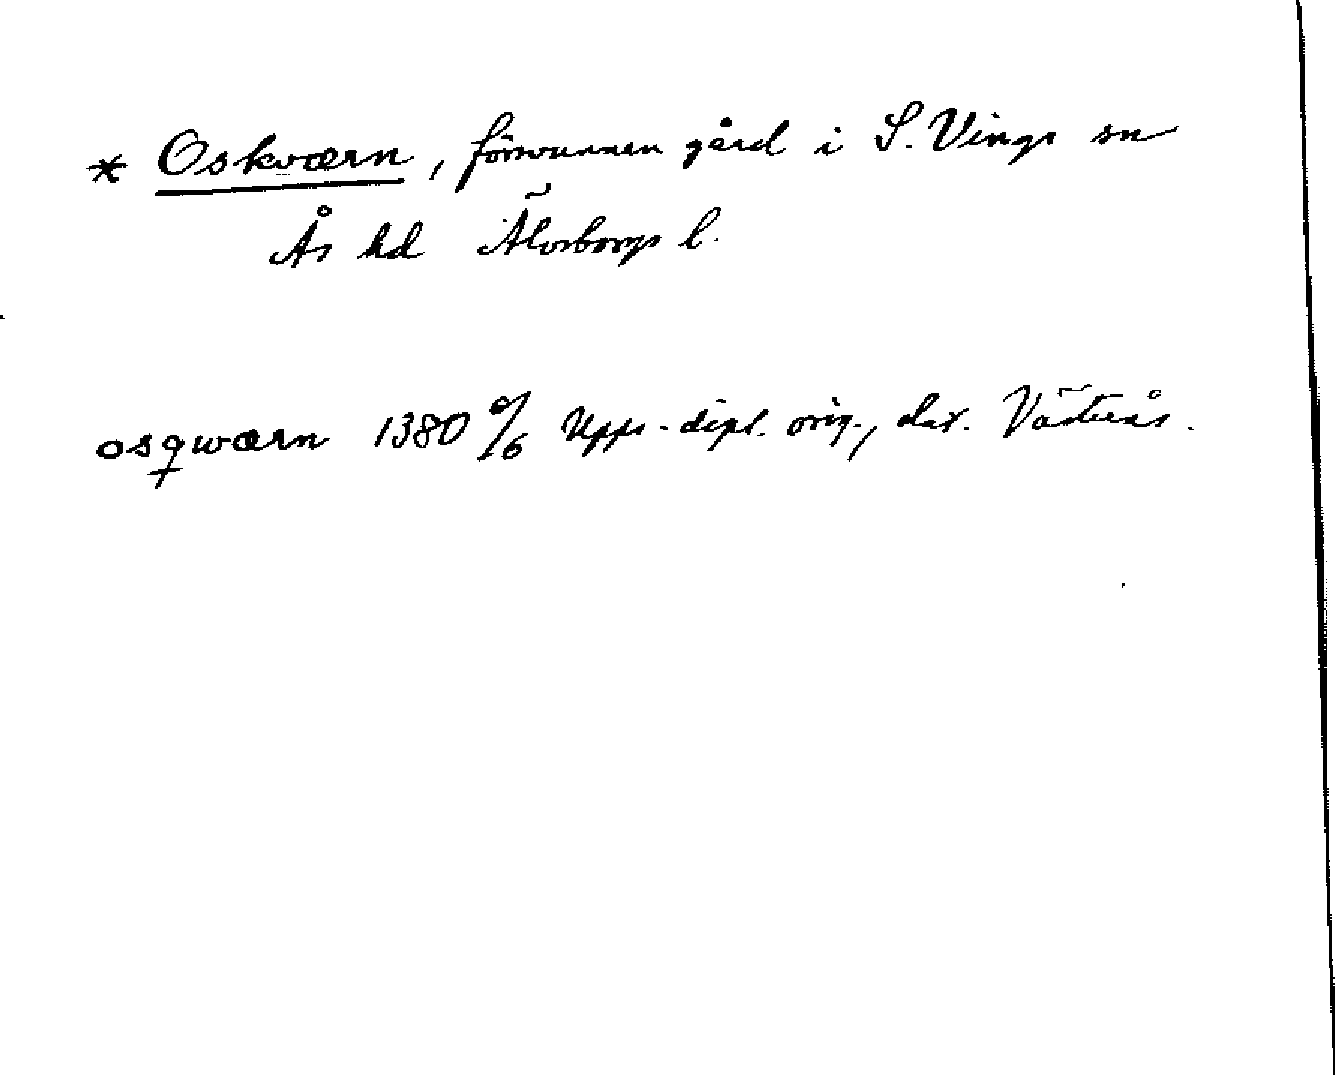 * Oskværn, försvunnen gård i S. Vings sn
Ås hd Älvsborgs l.
osqwærn 1380 9/6 Upps. dipl. orig., dat. Västerås.